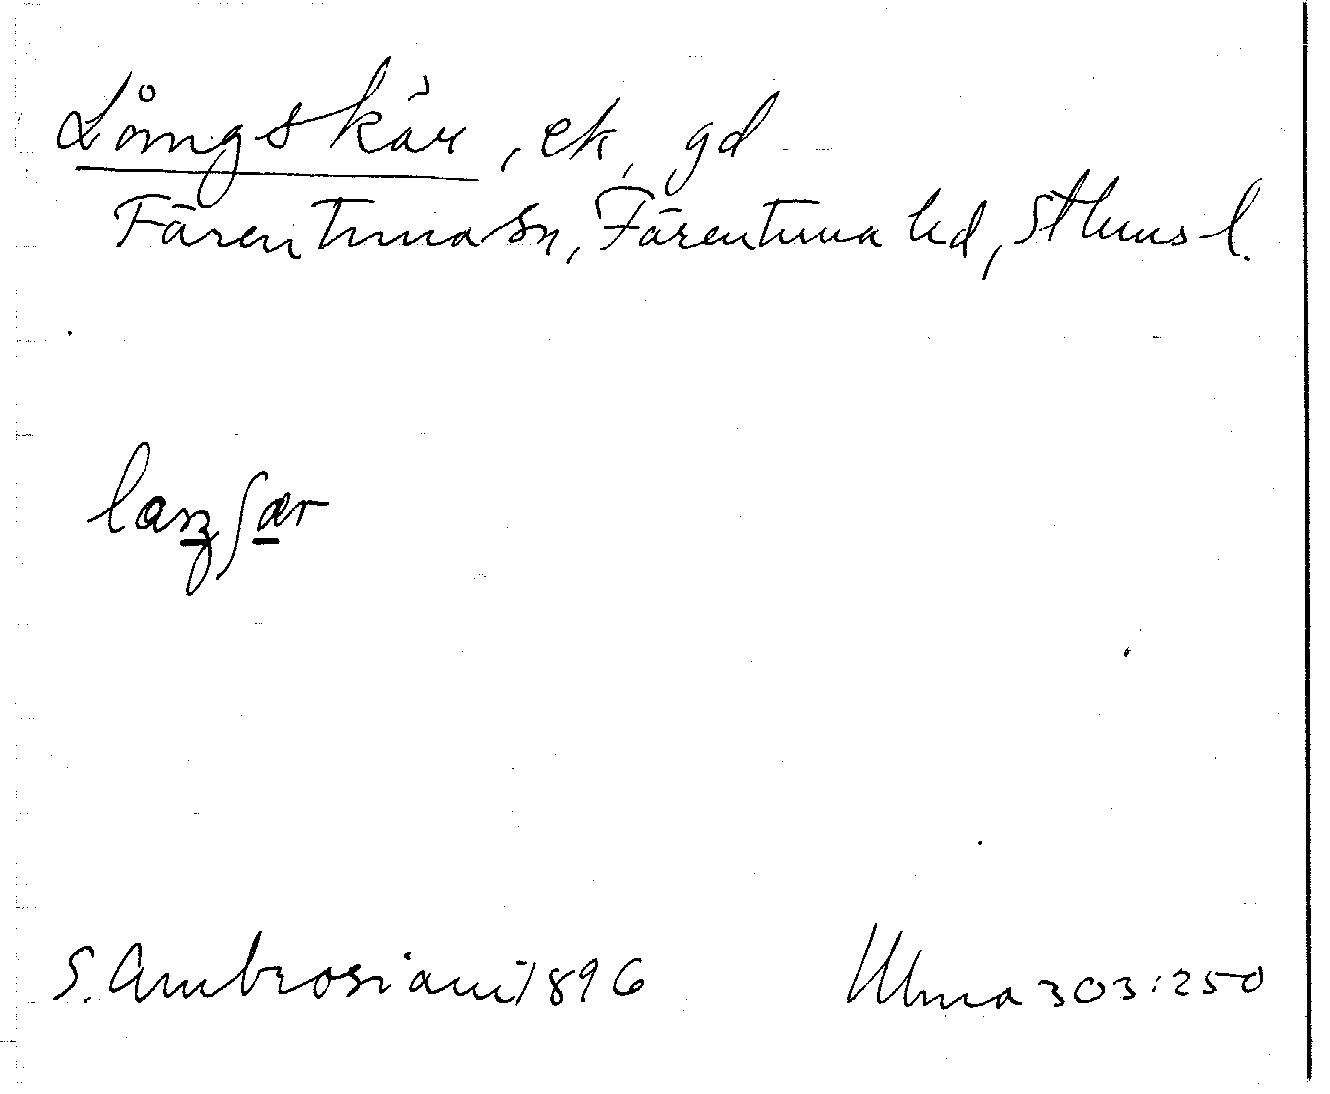 Långskär, ek, gd
Färentuna sn, Färentuna hd, Sthms l.
S. Ambrosiani 1896 Ulma 303:250